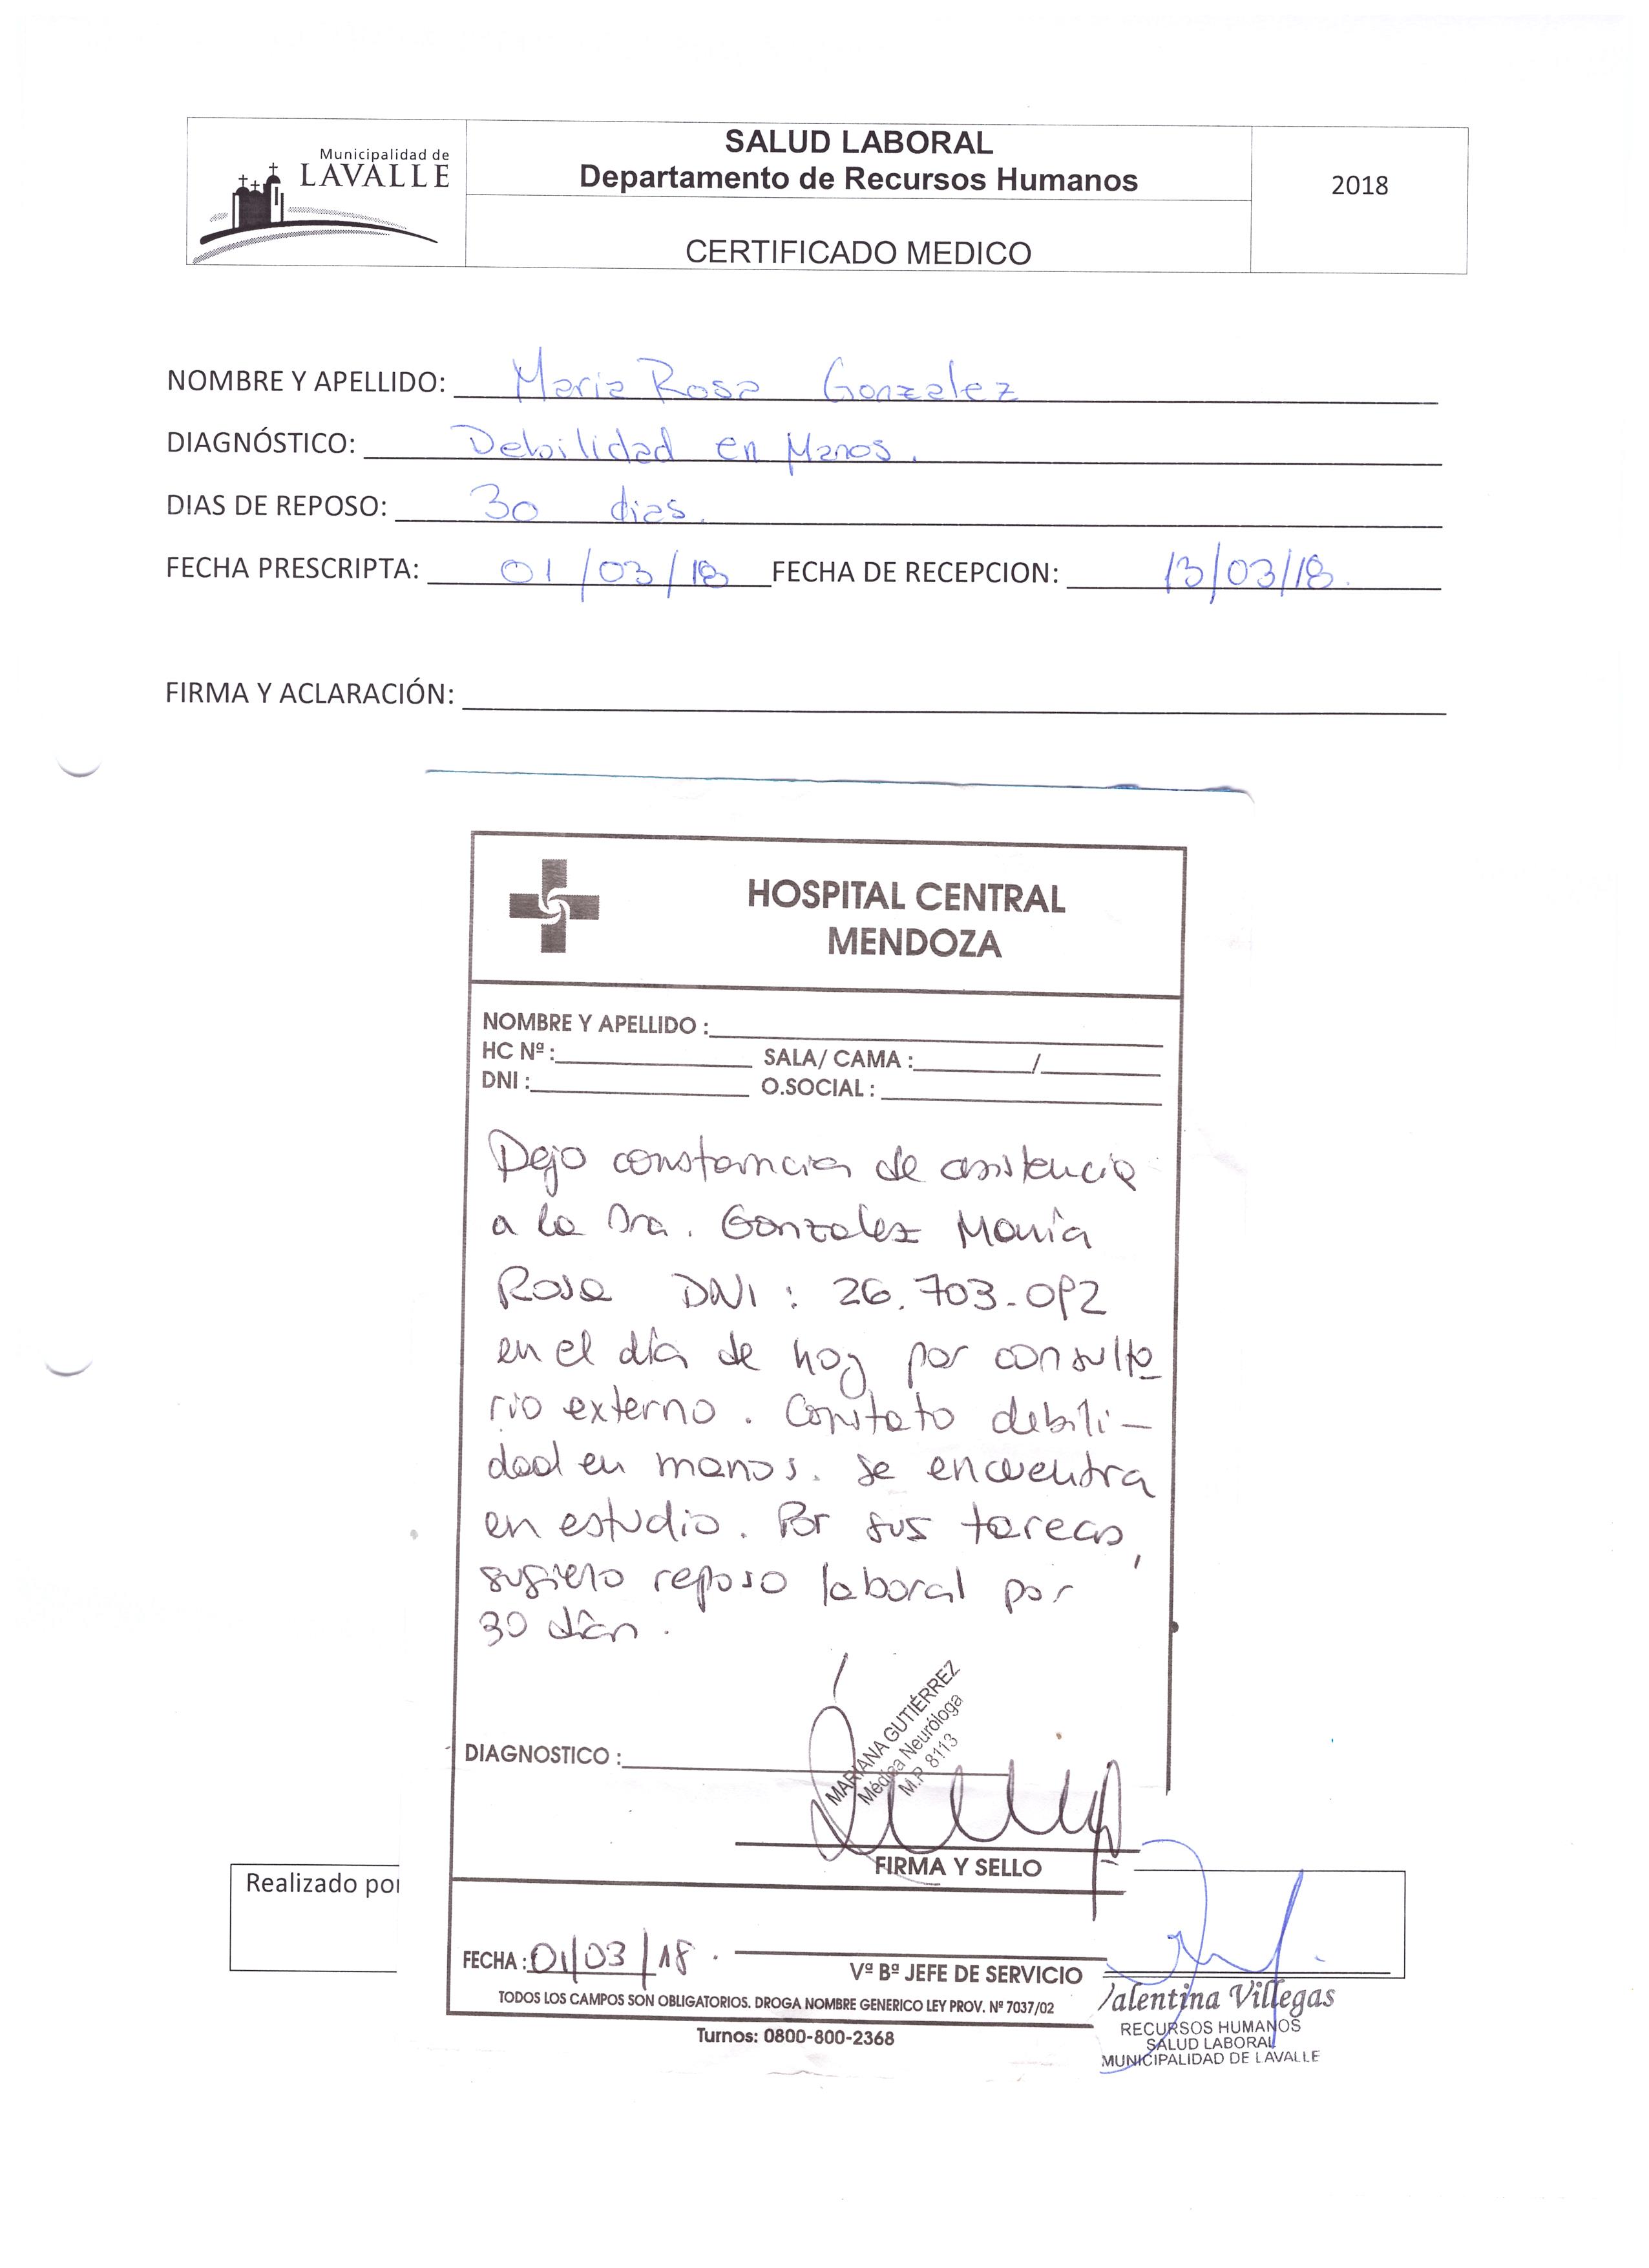 Municipalidad de
LAVALLE
SALUD LABORAL
Departamento de Recursos Humanos
CERTIFICADO MEDICO
2018
NOMBRE Y APELLIDO: Maria Rosa Gonzalez
DIAGNÓSTICO: Debilidad en Manos.
DIAS DE REPOSO: 30 dias.
FECHA PRESCRIPTA: 01/03/18 FECHA DE RECEPCION: 13/03/18.
FIRMA Y ACLARACIÓN:
HOSPITAL CENTRAL
MENDOZA
NOMBRE Y APELLIDO :
HC Nº : SALA/ CAMA : /
DNI : O.SOCIAL :
Dejo constancia de asistencia
a la Sra. Gonzalez María
Rosa DNI : 26.703.092
en el día de hoy por consulto
rio externo. Constato debili-
dad en manos. Se encuentra
en estudio. Por sus tareas,
sugiero reposo laboral por
30 días.
MARIANA GUTIÉRREZ
Médica Neuróloga
M.P. 8113
DIAGNOSTICO :
FIRMA Y SELLO
Realizado por
FECHA : 01/03/18.
Vª Bª JEFE DE SERVICIO
TODOS LOS CAMPOS SON OBLIGATORIOS. DROGA NOMBRE GENERICO LEY PROV. Nº 7037/02
Turnos: 0800-800-2368
Valentina Villegas
RECURSOS HUMANOS
SALUD LABORAL
MUNICIPALIDAD DE LAVALLE